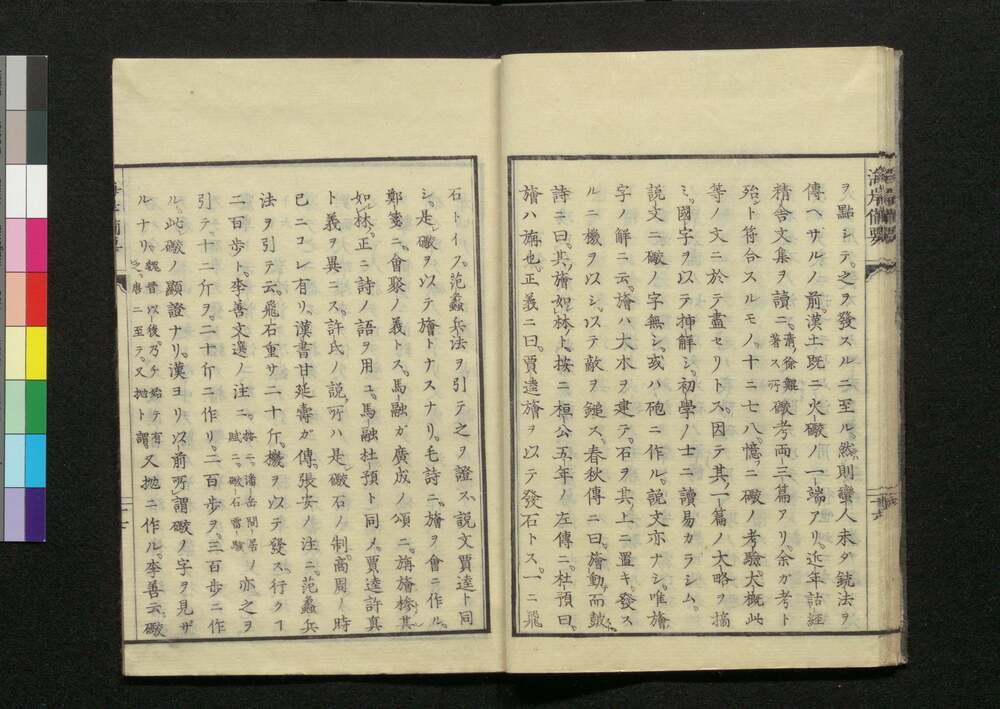 ヲ點シテ。之ヲ發スルニ至ル。然則蠻人未ダ銃法ヲ
傳ヘサルノ前漢土既ニ火礮ノ一端アリ。近年詁經
精舎文集ヲ讀ニ。清徐鯤著ス所礮考両三篇アリ。余ガ考ト
殆ント符合スルモノ。十ニ七八。憶フニ礮ノ考驗。大概此
等ノ文ニ於テ盡セリトス。因テ其ノ一篇ノ大略ヲ摘
ミ。國字ヲ以テ挿解シ。初學ノ士ニ讀易カラシム。
說文ニ礮ノ字無シ。或ハ砲ニ作ル。說文亦ナシ。唯旝
字ノ解ニ云。旝ハ大木ヲ建テ。石ヲ其ノ上ニ置キ。發ス
ルニ機ヲ以シ。以テ敵ヲ鎚ス。春秋傳ニ曰。旝動而鼓
詩ニ曰。其ノ旝如林ト。按ニ桓公五年ノ左傳ニ。杜預曰。
旝ハ旃也。正義ニ曰。賈逵旝ヲ以テ發石トス。一ニ飛
石トイフ。范蠡兵法ヲ引テ之ヲ證ス。說文賈逵ト同
シ。是礮ヲ以テ旝トナスナリ。毛詩ニ。旝ヲ會ニ作ル。
鄭箋ニ。會聚ノ義トス。馬融ガ廣成ノ頌ニ。旃旝摻其
如林。正ニ詩ノ語ヲ用ユ。馬融杜預ト同メ。賈逵許真
ト義ヲ異ニス。許氏ノ說ク所ハ是礮石ノ制。商周ノ時
已ニコレ有リ。漢書甘延壽ガ傳。張安ノ注ニ。范蠡兵
法ヲ引テ云。飛石重サ二十斤。機ヲ以テ發ス。行クヿ
二百歩ト。李善文選ノ注ニ。按ニ。潘岳閒居ノ賦ニ。礮石雷駭亦之ヲ
引テ。十二斤ヲ。二十斤ニ作リ。二百歩ヲ。三百歩ニ作
ル。此礮ノ顯證ナリ。漢ヨリ以前所謂礮ノ字ヲ見ザ
ルナリ。魏晉以後。乃チ始テ有之。唐ニ至テ。又抛ト謂。又抛ニ作ル。李善云。礮